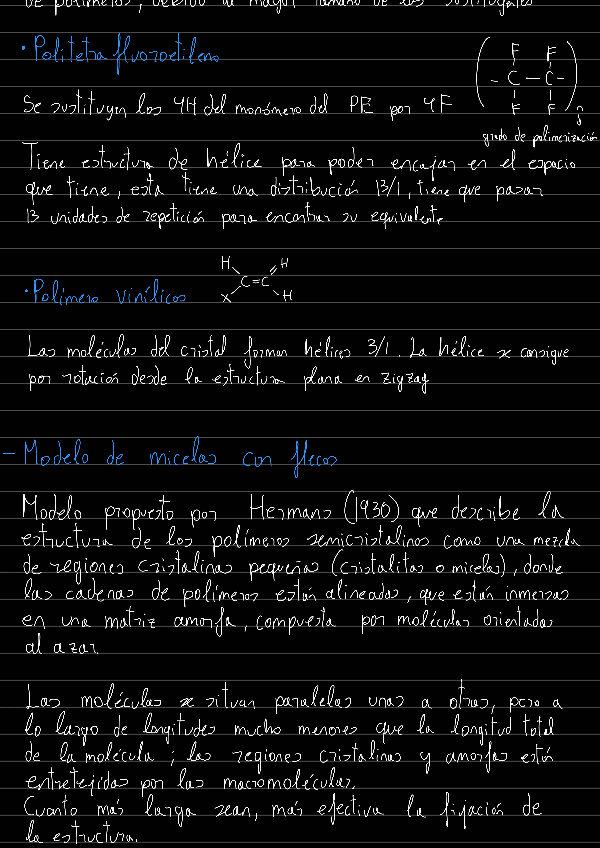 de polímeros, debido al mayor tamaño de los sustituyentes
· Politetrafluoroetileno
F F
- C - C -
F F n
Se sustituyen los 4H del monómero del PE por 4F
grado de polimerización
Tiene estructura de hélice para poder encajar en el espacio
que tiene, esta tiene una distribución 13/1, tiene que pasar
13 unidades de repetición para encontrar su equivalente.
H H
C=C
X H
· Polímero vinílicos
Las moléculas del cristal forman hélices 3/1. La hélice se consigue
por rotación desde la estructura plana en zigzag
- Modelo de micelas con flecos
Modelo propuesto por Hermans (1930) que describe la
estructura de los polímeros semicristalinos como una mezcla
de regiones cristalinas pequeñas (cristalitas o micelas), donde
las cadenas de polímeros están alineadas, que están inmersas
en una matriz amorfa, compuesta por moléculas orientadas
al azar
Las moléculas se situan paralelas unas a otras, pero a
lo largo de longitudes mucho menores que la longitud total
de la molécula; las regiones cristalinas y amorfas están
entretejidas por las macromoléculas.
Cuanto más larga sean, más efectiva la fijación de
la estructura.